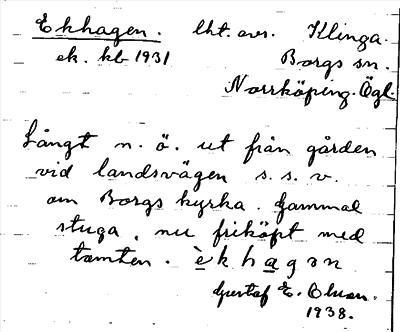 Ekhagen. lht. avs. Klinga.
ek. kb 1931 Borgs sn.
Norrköping. Ögl.
Långt n. ö. ut från gården
vid landsvägen s. s. v.
om Borgs kyrka. Gammal
stuga, nu friköpt med
tomten. èkhagən
Gustaf E. Olson.
1938.